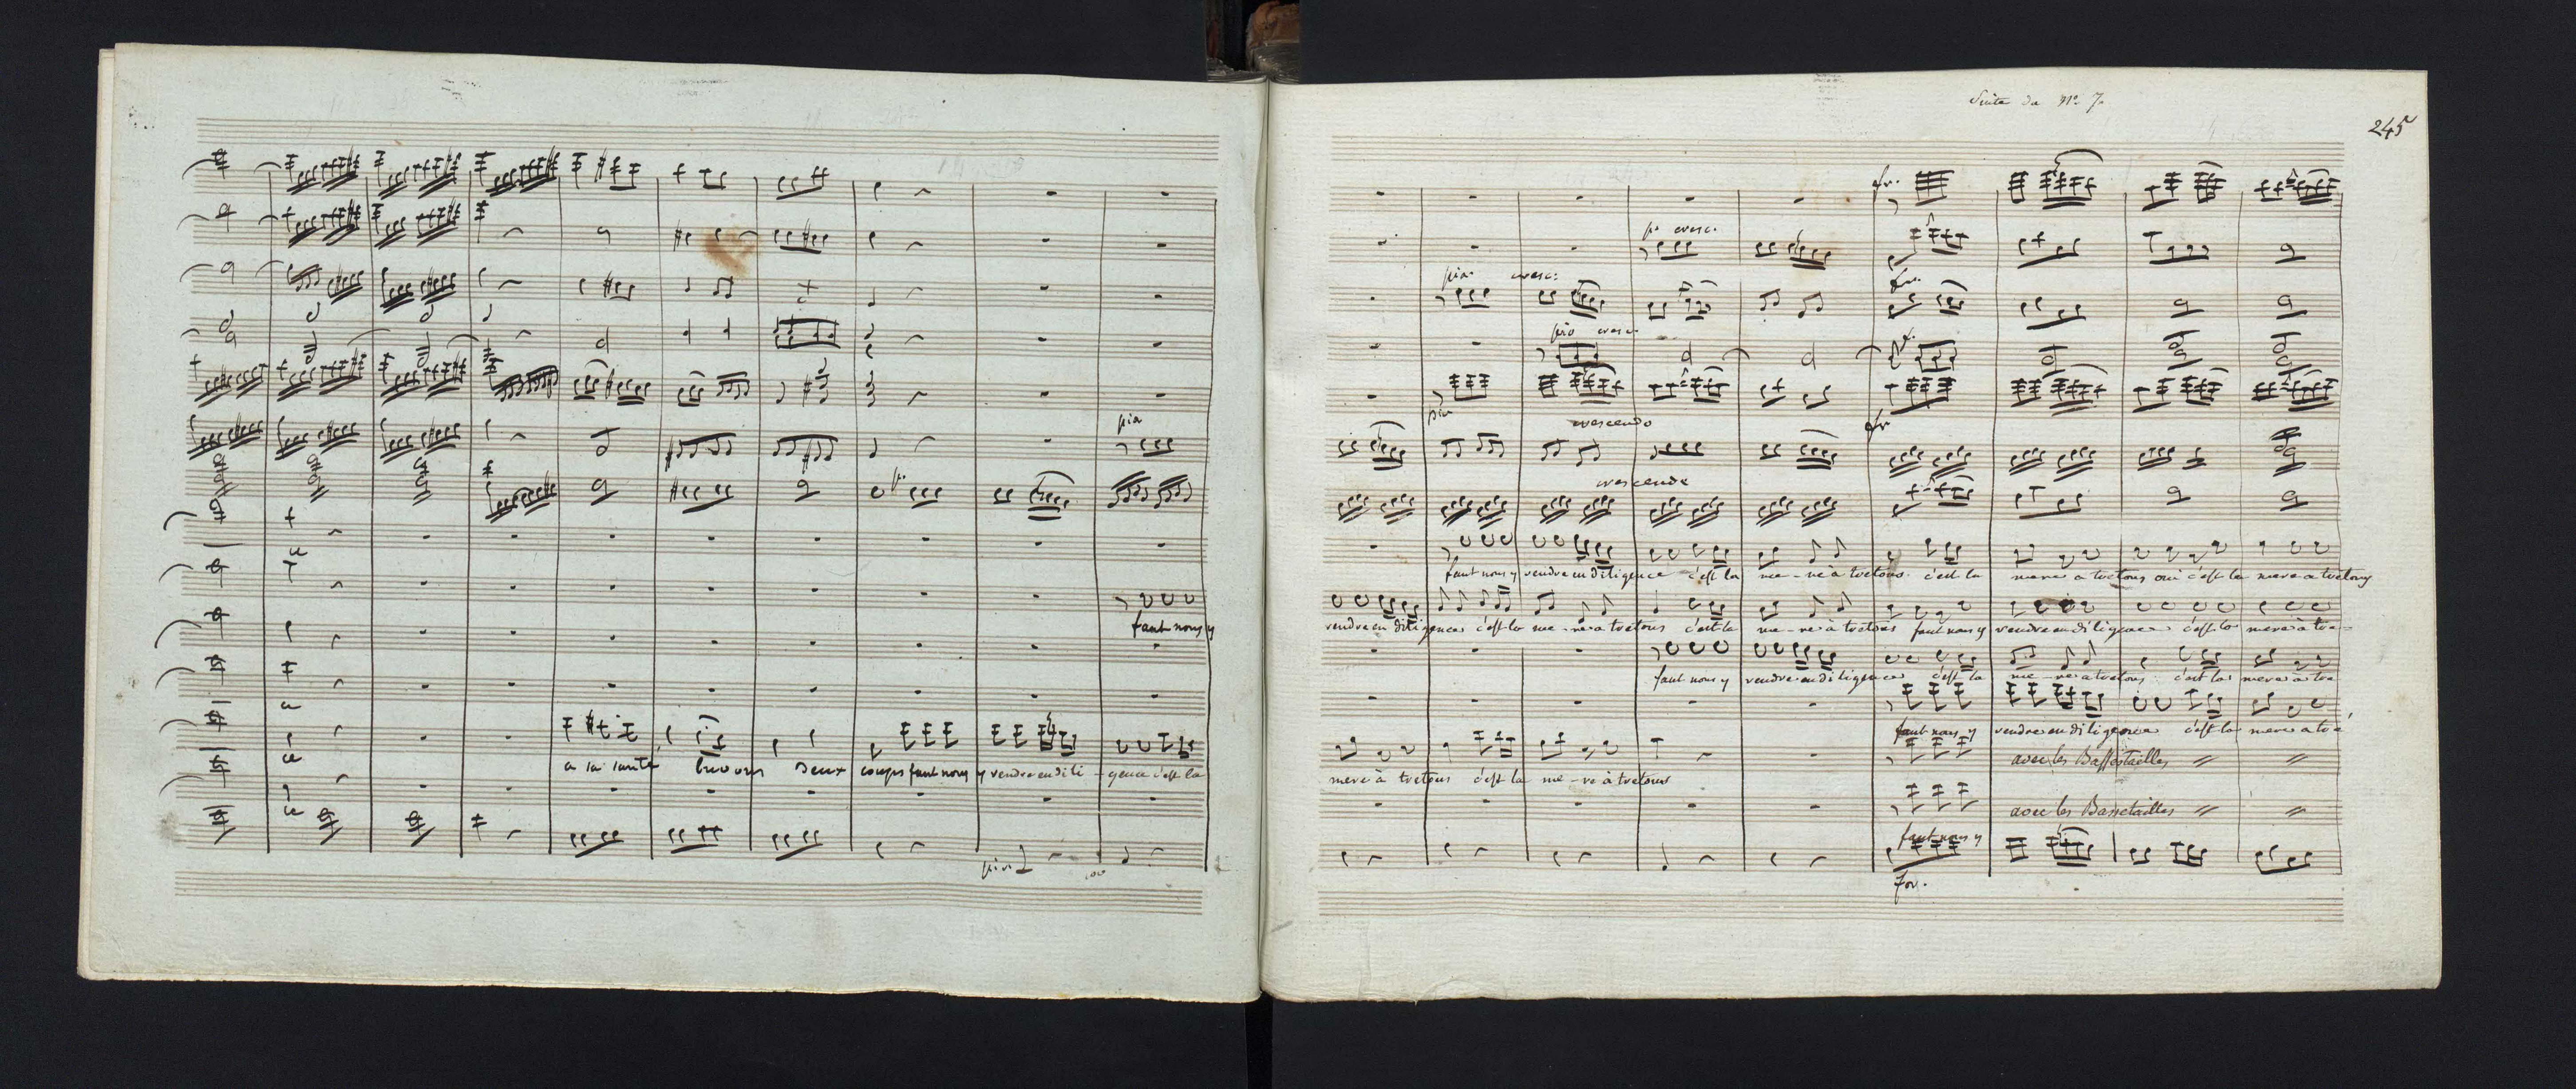 pia
faut nous y
a la santé buvons deux coups faut nous y rendre en dili-gence c'est la
pia
Suite du N.º 7.
245
fr.
p.º cresc.
pia. cresc:
fr.
pio cresc.
f.
pia
crescendo
fr
crescendo
faut nous y rendre en diligence c'est la me-re à tretous c'est la mere a tretous oui c'est la mere a tretous
rendre en diligence c'est la me-re a tretous c'est la me-re à tretous faut nous y rendre en diligence c'est la mere à tre-
faut nous y rendre en diligence c'est la me-re a tretous c'est la mere a tre
faut nous y rendre en diligence c'est la mere a tre
mere à tretous c'est la me-re à tretous avec les Bassetailles
avec les Bassetailles
faut nous y
for.